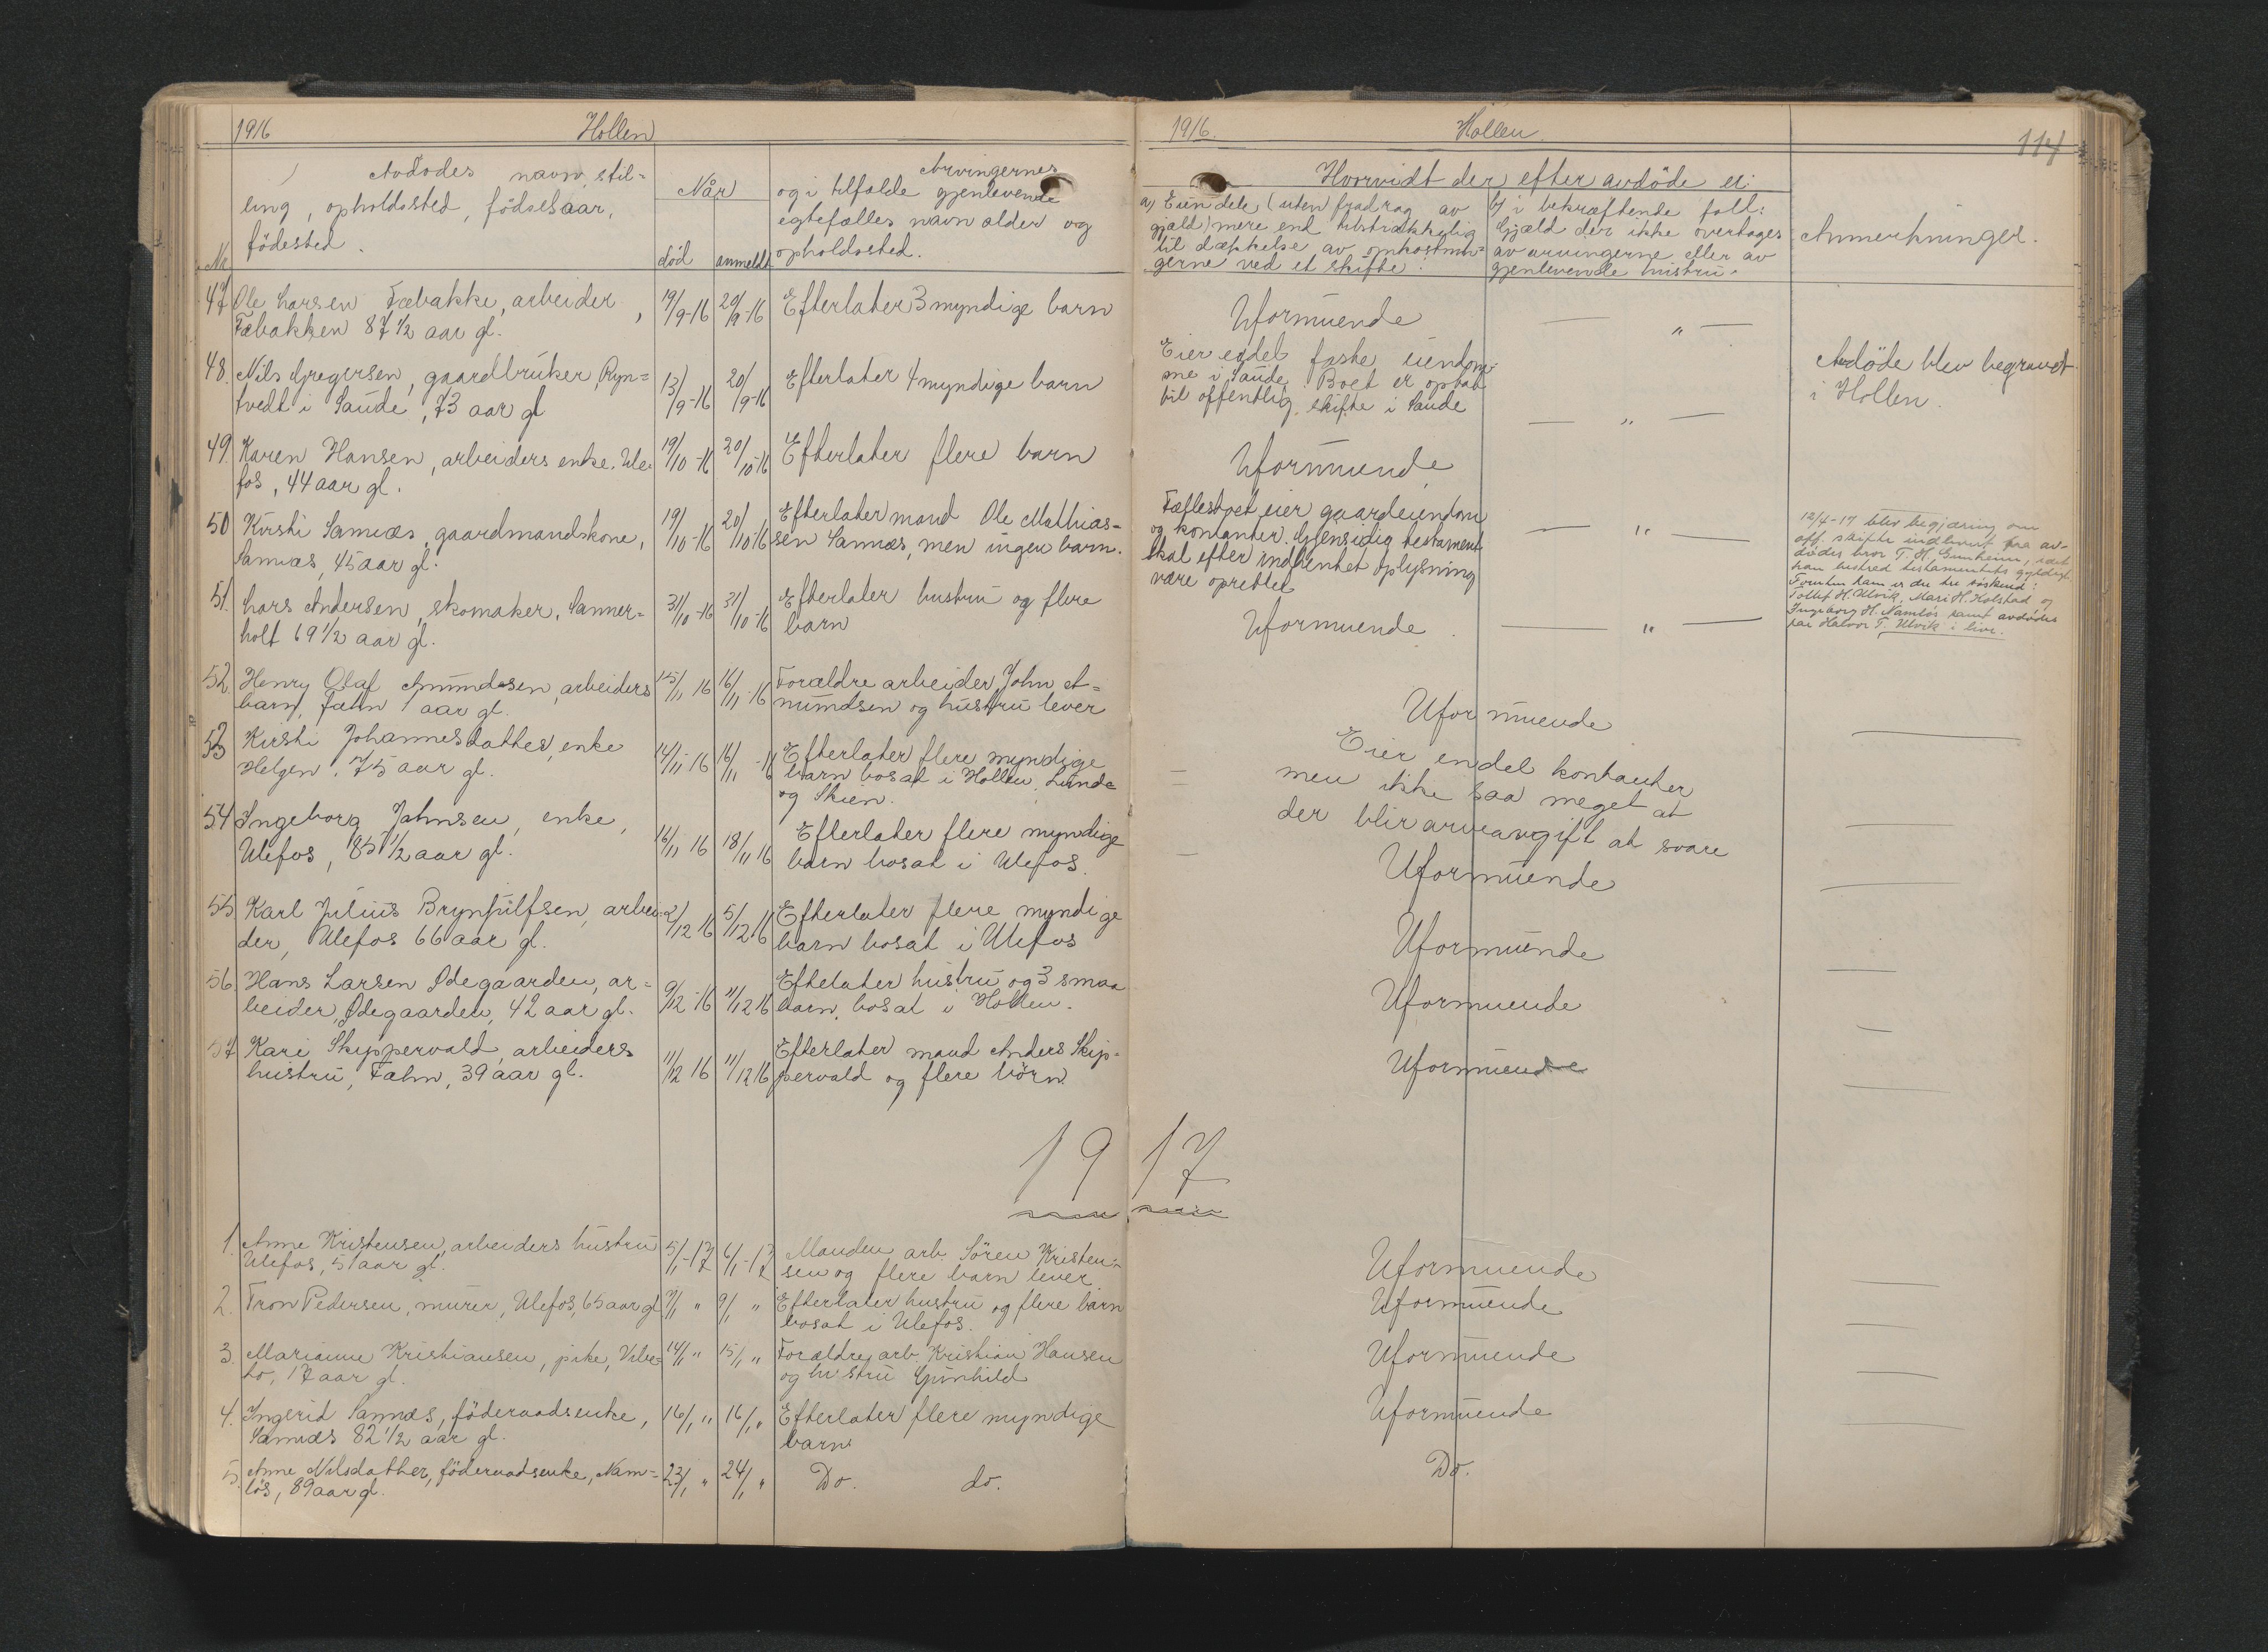 1916 Hollen
Avdödes navn, stil-
ling, opholdssted, födselsaar,
födested.
No
Når
död anmeldt
Arvingernes
og i tilfælde gjenlevende
egtefælles navn alder og
opholdssted.
47 Ole Larsen Fæbakke, arbeider,
Fæbakken 87 1/2 aar gl.
19/9-16 20/9-16
Efterlater 3 myndige barn
48. Nils Gregersen, gaardbruker, Ryn=
tvedt i Saude, 73 aar gl
13/9-16 20/9-16
Efterlater 4 myndige barn
49. Karen Hansen, arbeiders enke. Ule-
fos, 44 aar gl.
19/10-16 20/10-16
Efterlater flere barn
50 Kirsti Sannæs, gaardmandskone,
Sannæs, 45 aar gl.
19/10-16 20/10-16
Efterlater mand Ole Mathias=
sen Sannæs, men ingen barn.
51. Lars Andersen, skomaker, Sanner=
holt 69 1/2 aar gl.
31/10-16 31/10-16
Efterlater hustru og flere
barn
52. Henry Olaf Amundsen, arbeiders
barn, Fæhn 1 aar gl.
15/11 16 16/11-16
Forældre arbeider John A=
mundsen og hustru lever
53 Kirsti Johannesdatter, enke
Helgen, 75 aar gl.
14/11-16 16/11-16
Efterlater flere myndige
barn bosat i Hollen, Lunde
og Skien.
54 Ingeborg Johnsen, enke,
Ulefos, 85 1/2 aar gl.
16/11 16 18/11 16
Efterlater flere myndige
barn bosat i Ulefos.
55 Karl Julius Brynhulfsen, arbei-
der, Ulefos 66 aar gl.
2/12 16 5/12 16
Efterlater flere myndige
barn bosat i Ulefos
56. Hans Larsen Ødegaarden, ar=
beider, Ødegaarden, 42 aar gl.
9/12-16 11/12 16
Eftelater hustru og 3 smaa
barn, bosat i Hollen.
57 Kari Skippervold, arbeiders
hustru, Fæhn, 39 aar gl.
11/12 16 11/12 16
Efterlater mand Anders Skip-
pervold og flere börn.
1917
1. Anne Kristensen, arbeiders hustru
Ulefos, 51 aar gl.
5/1-17 6/1-17
Manden arb. Sören Kristen-
sen og flere barn lever
2. Tron Pedersen, murer, Ulefos, 65 aar gl
7/1 " 9/1 "
Efterlater hustru og flere barn
bosat i Ulefos.
3. Marianne Kristiansen, pike, Vibe-
to, 17 aar gl.
14/1 " 15/1 "
Forældre arb. Kristian Hansen
og hustru Gunhild
4. Ingerid Sannæs, föderaadsenke,
Sannæs 82 1/2 aar gl.
16/1 " 16/1 "
Efterlater flere myndige
barn
5. Anne Nilsdatter, föderaadsenke, Nam=
lös, 89 aar gl.
23/1 " 24/1 "
Do. do.
1916. Hollen. 114
Hvorvidt der efter avdöde er:
a) Eiendele (uten fradrag av
gjæld) mere end tilstrækkelig
til dækkelse av omkostnin=
gerne ved et skifte.
b) i bekræftende fald:
Gjæld der ikke overtages
av arvingerne eller av
gjenlevende hustru.
Anmerkninger.
Uformuende — " —
Eier endel faste eiendom-
me i Saude. Boet er optat
til offentlig skifte i Saude
— " —
Avdöde blev begravet
i Hollen.
Uformuende
Fællesboet eier gaardeiendom
og kontanter. Gjensidig testament
skal efter indhentet oplysning
være oprettet
— " —
12/4-17 blev begjæring om
off. skifte indlevert fra av-
dödes bror T. H. Gunheim, idet
han bestred testamentets gyldigh.
Foruten ham er der tre söskend:
Tollef H. Ulvik, Mari H. Kolstad og
Ingeborg H. Namlös samt avdödes
far Halvor T. Ulvik i live.
Uformuende. — " —
Uformuende
Eier endel kontanter
men ikke saa meget at
der blir arveavgift at svare
Uformuende
Uformuende
Uformuende
Uformuende
Uformuende
Uformuende
Uformuende
Uformuende
Do.